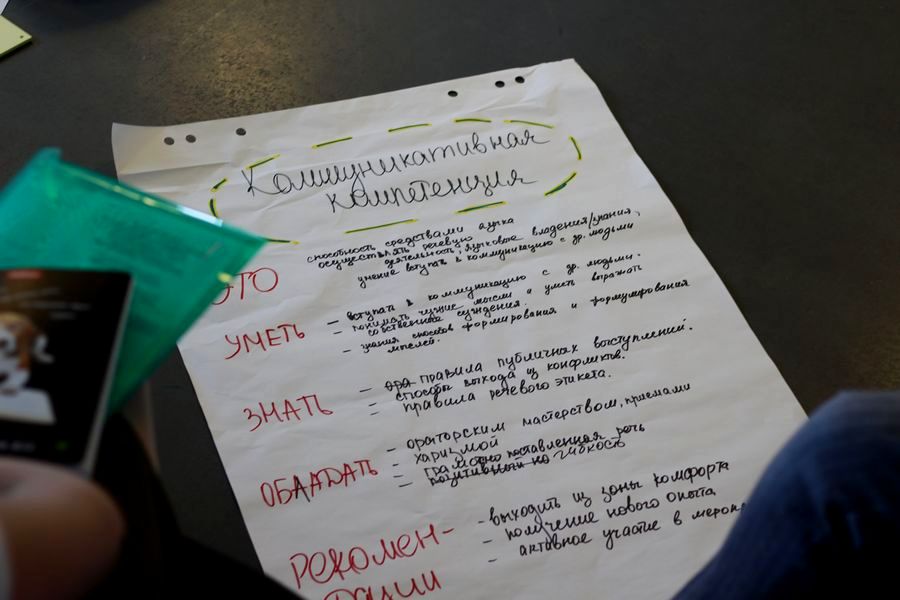 Коммуникативная
компетенция
ЭТО
способность средствами языка
осуществлять речевую
деятельность; языковые владения/знания,
умение вступать в коммуникацию с др. людьми
УМЕТЬ
– вступать в коммуникацию с др. людьми.
– понимать чужие мысли и уметь выражать
собственные суждения.
– знания способов формирования и формулирования
мыслей.
ЗНАТЬ
– ора правила публичных выступлений.
– способы выхода из конфликтов.
– правила речевого этикета.
ОБЛАДАТЬ
– ораторским мастерством, приемами
– харизмой
– грамотно поставленная речь
– гибкость
РЕКОМЕН-
ДАЦИИ
- выходить из зоны комфорта
- получение нового опыта
- активное участие в мероп